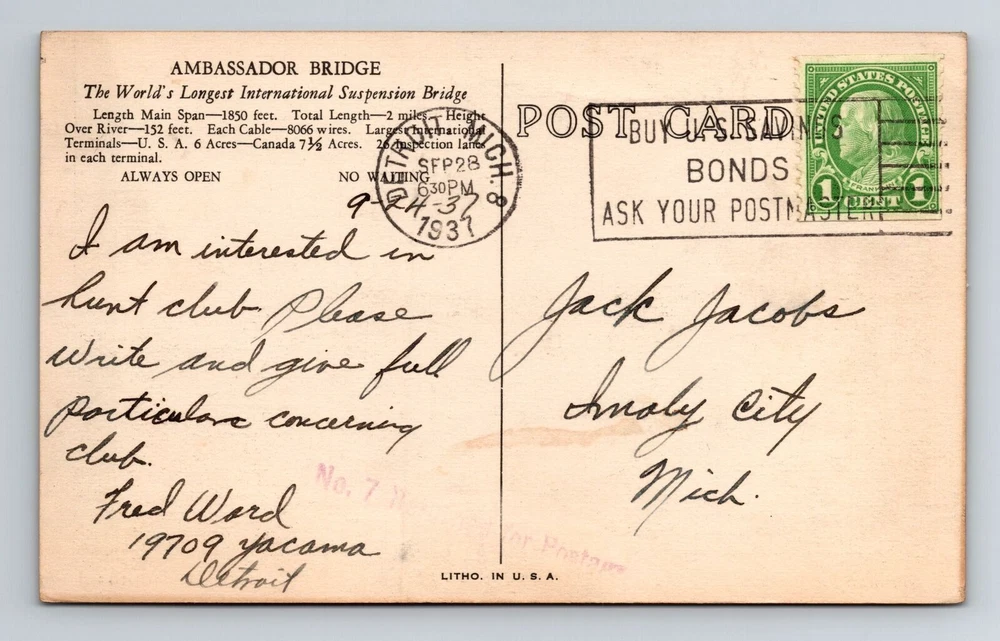 AMBASSADOR BRIDGE
The World's Longest International Suspension Bridge
Length Main Span—1850 feet. Total Length—2 miles. Height
Over River—152 feet. Each Cable—8066 wires. Largest International
Terminals—U. S. A. 6 Acres—Canada 7½ Acres. 26 inspection lanes
in each terminal.
ALWAYS OPEN NO WAITING
9-24-37
I am interested in
hunt club. Please
write and give full
particulars concerning
club.
Fred Ward
19709 Yacama
Detroit
DETROIT, MICH. 8
SEP 28
6 30 PM
1937
POST CARD
BUY U.S. SAVINGS
BONDS
ASK YOUR POSTMASTER
UNITED STATES POSTAGE
FRANKLIN
1 CENT 1
Jack Jacobs
Imaly City
Mich.
No. 7
for Postage
LITHO. IN U. S. A.